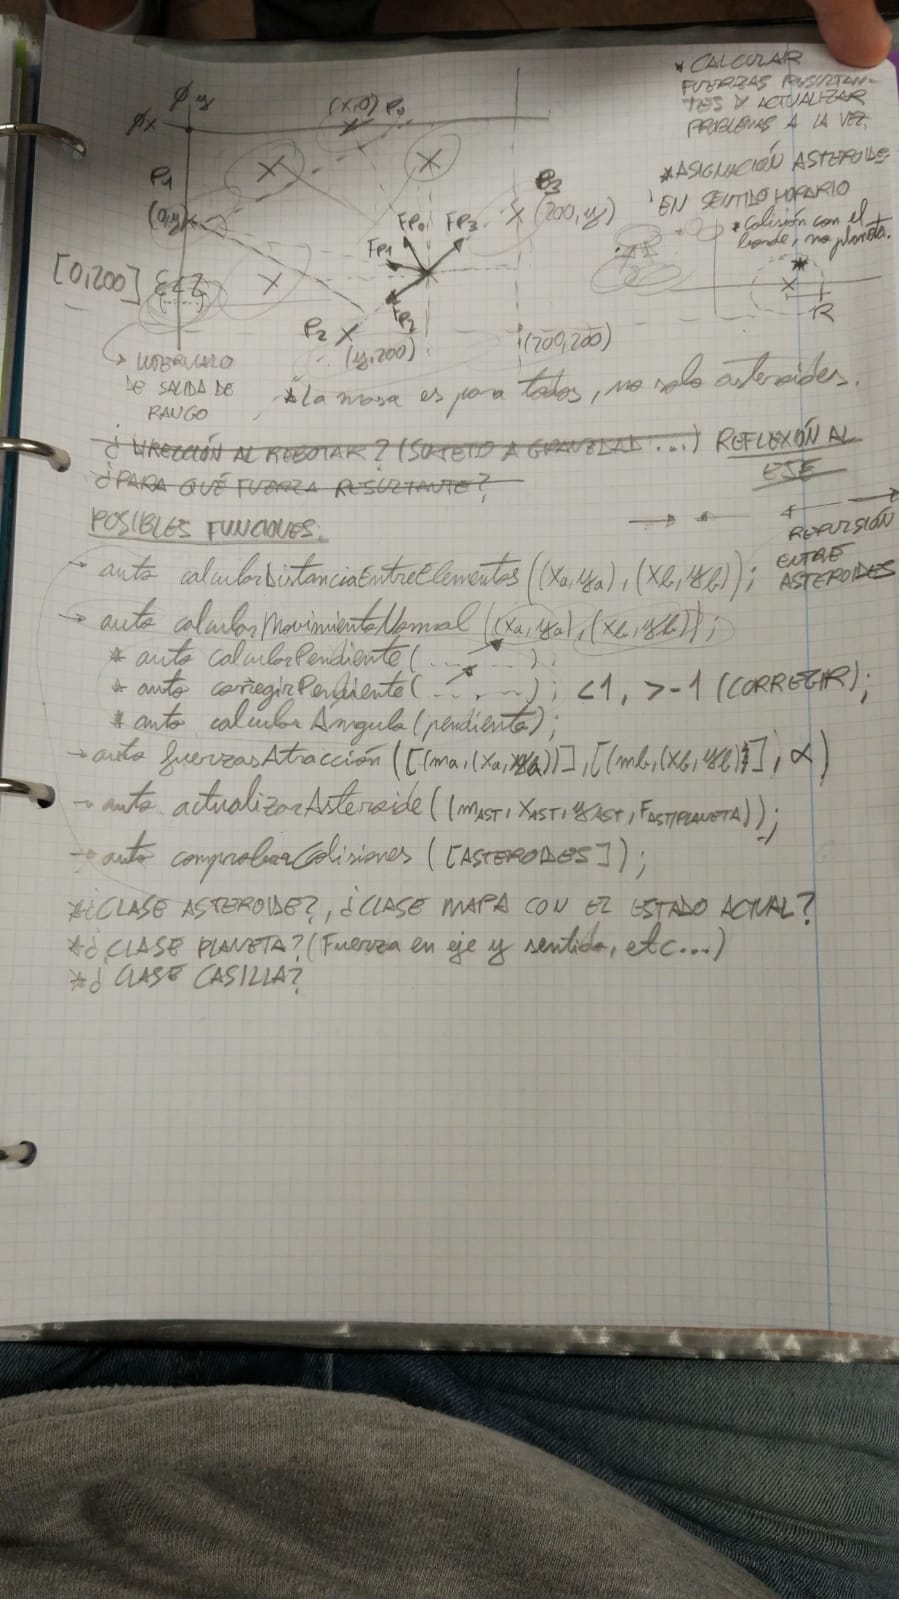 * CALCULAR
FUERZAS RESULTAN-
TES Y ACTUALIZAR
PROBLEMAS A LA VEZ.
* ASIGNACIÓN ASTEROIDE
EN SENTIDO HORARIO
* Colisión con el
borde, no planeta.
R
Øy
Øx
(x,0) P0
P1
(0,y)
P3
(200,y)
FP0
FP3
FP1
FP2
[0,200]
P2
(y,200)
(200,200)
INTERVALO
DE SALIDA DE
RANGO
* La masa es para todos, no solo asteroides.
¿DIRECCIÓN AL REBOTAR? (SUJETO A GRAVEDAD...) REFLEXIÓN AL
EJE
¿PARA QUÉ FUERZA RESULTANTE?
POSIBLES FUNCIONES:
REPULSIÓN
ENTRE
ASTEROIDES
→ auto calcularDistanciaEntreElementos((xa,ya),(xb,yb));
→ auto calcularMovimientoNormal((xa,ya),(xb,yb));
* auto calcularPendiente(......);
* auto corregirPendiente(...,...); <1, >-1 (CORREGIR);
* auto calcularÁngulo(pendiente);
→ auto fuerzasAtracción([(ma,(xa,ya))],[(mb,(xb,yb))],α)
→ auto actualizarAsteroide((mAST,xAST,yAST,FAST/PLANETA));
→ auto comprobarColisiones([ASTEROIDES]);
*¿CLASE ASTEROIDE?, ¿CLASE MAPA CON EL ESTADO ACTUAL?
*¿CLASE PLANETA? (Fuerza en eje y sentido, etc...)
*¿CLASE CASILLA?